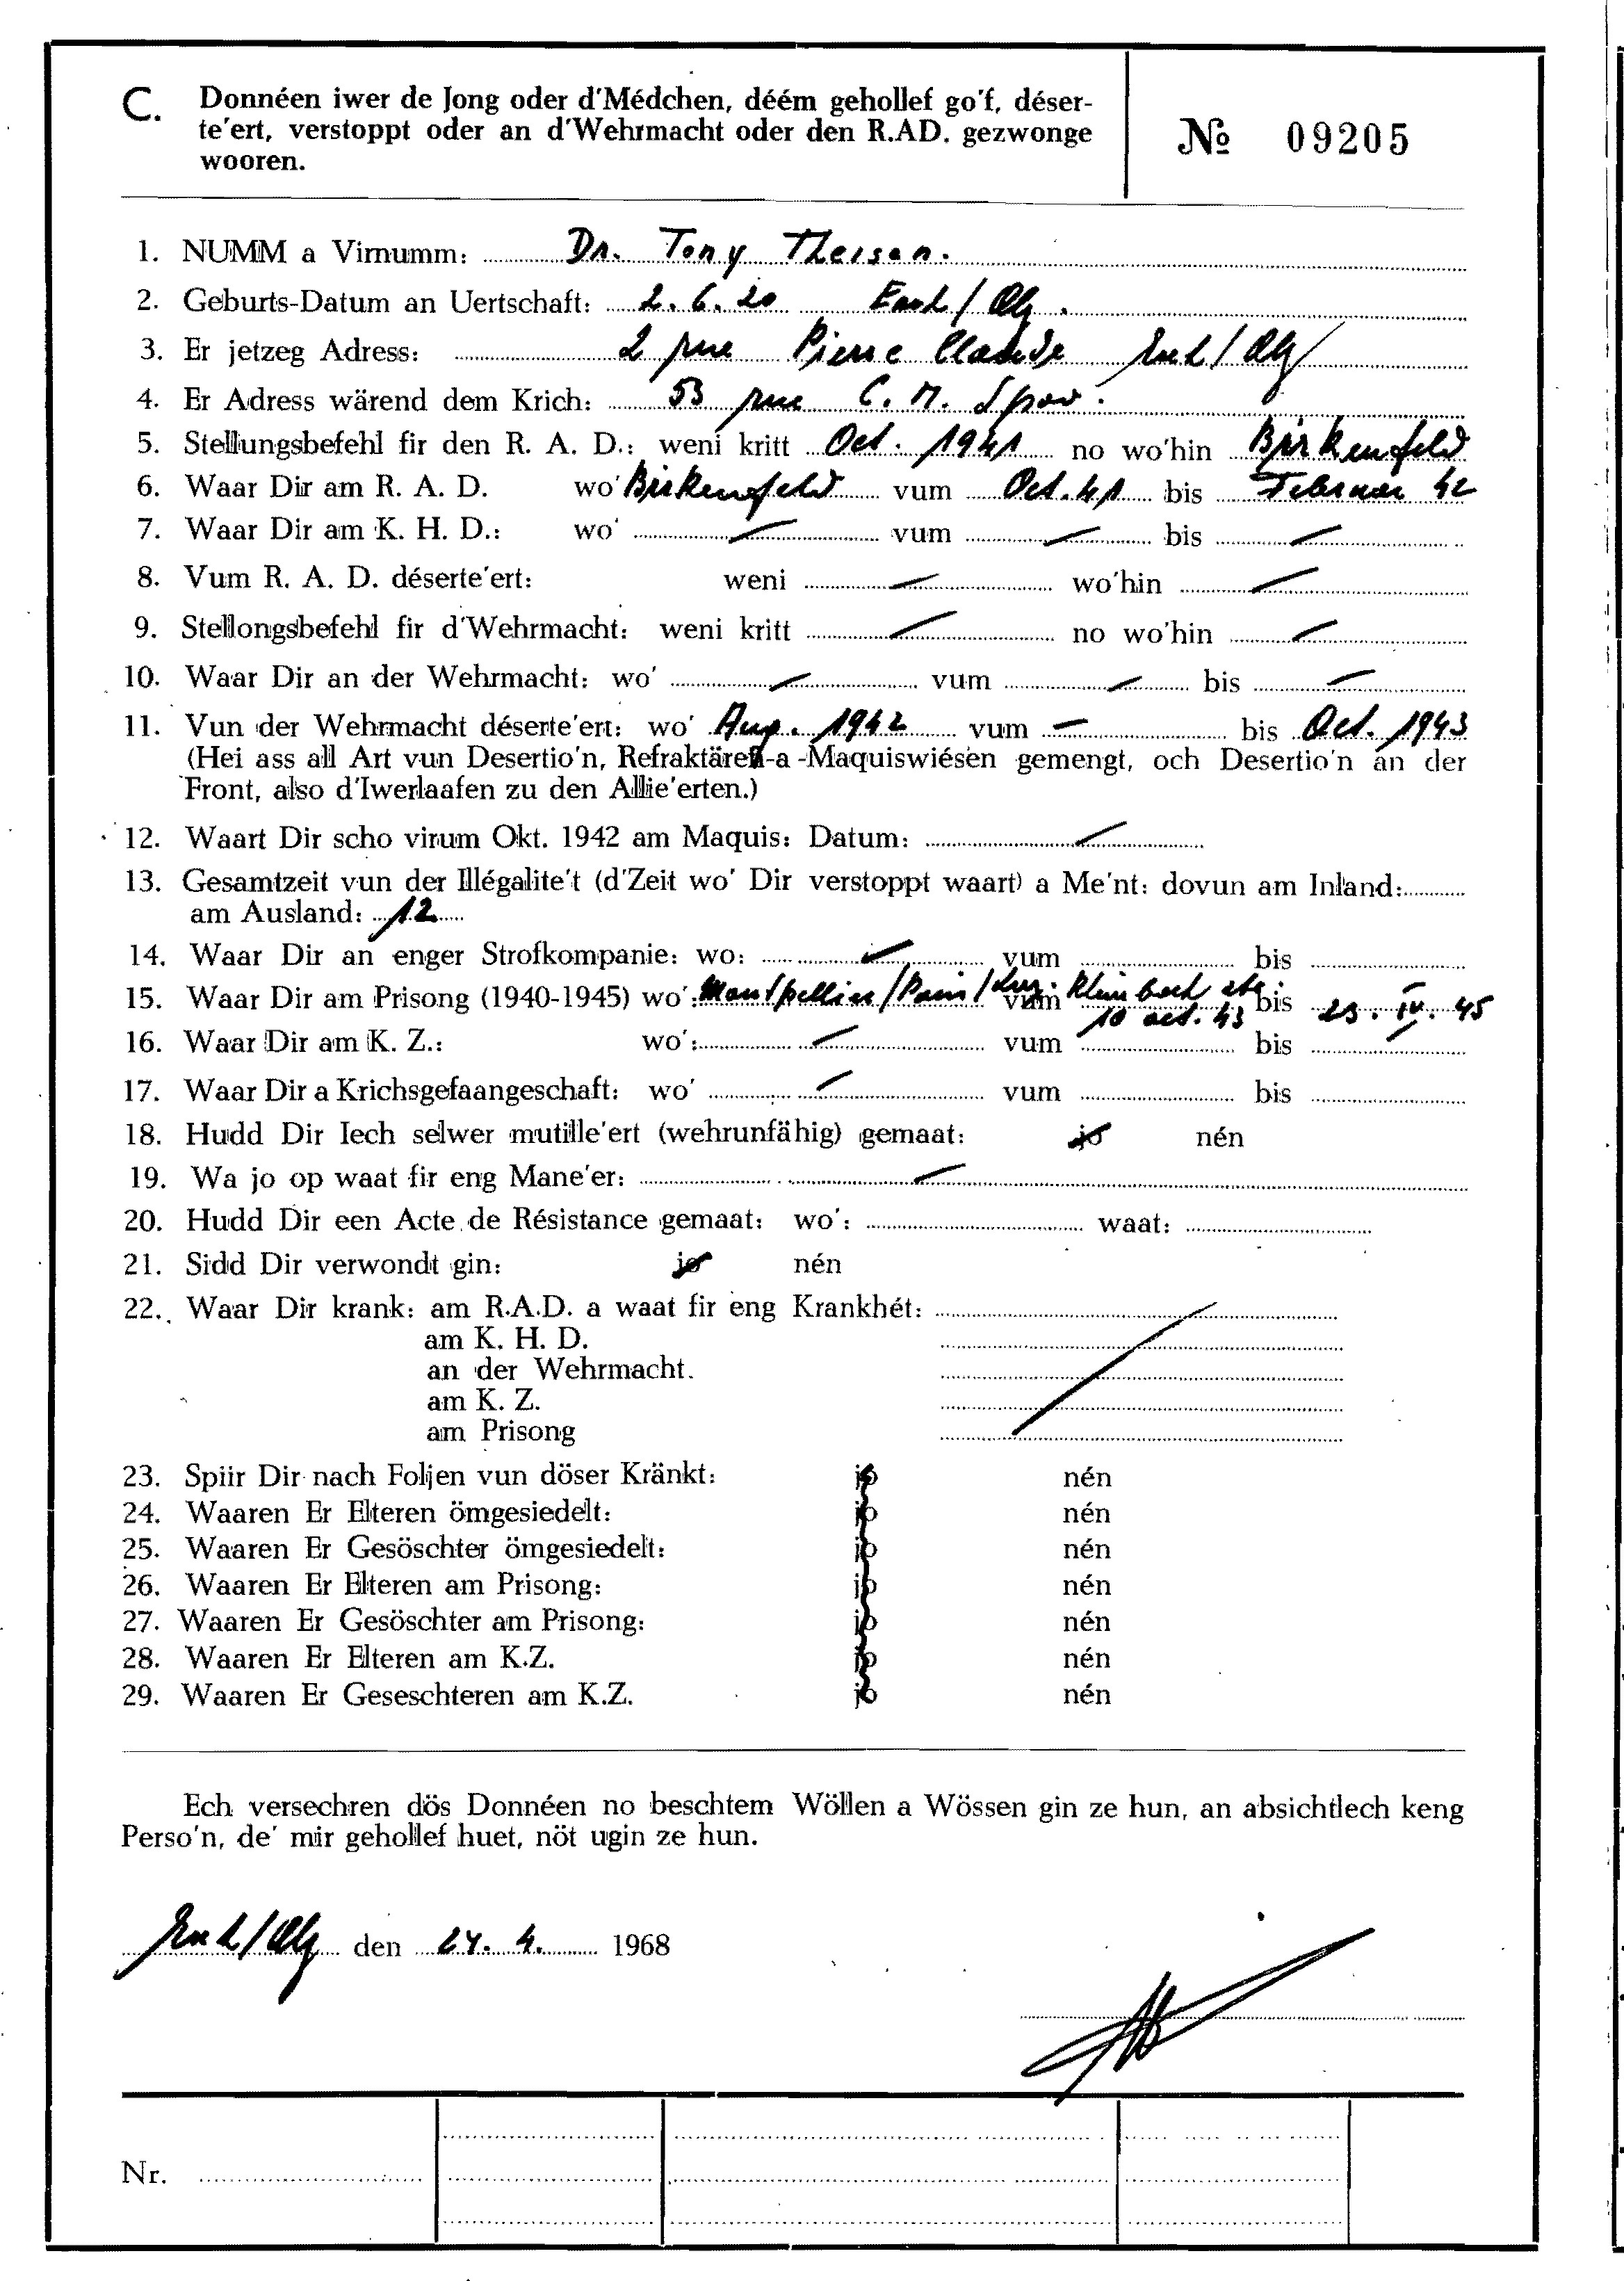 C. Donnéen iwer de Jong oder d'Médchen, déém gehollef go'f, déser-
te'ert, verstoppt oder an d'Wehrmacht oder den R.AD. gezwonge
wooren.
№ 09205
1. NUMM a Virnumm: Dr. Tony Theisen.
2. Geburts-Datum an Uertschaft: 2.6.20 Esch/Alz.
3. Er jetzeg Adress: 2 rue Pierre Claude Esch/Alz
4. Er Adress wärend dem Krich: 53 rue C. M. Spoo.
5. Stellungsbefehl fir den R. A. D.: weni kritt Oct. 1941 no wo'hin Birkenfeld
6. Waar Dir am R. A. D. wo' Birkenfeld vum Oct. 41 bis Februar 42
7. Waar Dir am K. H. D.: wo' — vum — bis —
8. Vum R. A. D. déserte'ert: weni — wo'hin —
9. Stellongsbefehl fir d'Wehrmacht: weni kritt — no wo'hin —
10. Waar Dir an der Wehrmacht: wo' — vum — bis —
11. Vun der Wehrmacht déserte'ert: wo' Aug. 1942 vum — bis Oct. 1943
(Hei ass all Art vun Desertio'n, Refraktären-a-Maquiswiésen gemengt, och Desertio'n an der
Front, also d'Iwerlaafen zu den Allie'erten.)
12. Waart Dir scho virum Okt. 1942 am Maquis: Datum: —
13. Gesamtzeit vun der Illégalite't (d'Zeit wo' Dir verstoppt waart) a Me'nt: dovun am Inland:
am Ausland: 12
14. Waar Dir an enger Strofkompanie: wo: — vum bis
15. Waar Dir am Prisong (1940-1945) wo': Montpellier/Paris/Lux. vum 10 oct. 43 bis 23. IV. 45
16. Waar Dir am K. Z.: wo': — vum bis —
17. Waar Dir a Krichsgefaangeschaft: wo' — vum bis
18. Hudd Dir Iech selwer mutille'ert (wehrunfähig) gemaat: jo nén
19. Wa jo op waat fir eng Mane'er: —
20. Hudd Dir een Acte de Résistance gemaat: wo': waat:
21. Sidd Dir verwondt gin: jo nén
22. Waar Dir krank: am R.A.D. a waat fir eng Krankhét:
am K. H. D.
an der Wehrmacht.
am K. Z.
am Prisong
23. Spiir Dir nach Foljen vun döser Kränkt: jo nén
24. Waaren Er Elteren ömgesiedelt: jo nén
25. Waaren Er Gesöschter ömgesiedelt: jo nén
26. Waaren Er Elteren am Prisong: jo nén
27. Waaren Er Gesöschter am Prisong: jo nén
28. Waaren Er Elteren am K.Z. jo nén
29. Waaren Er Geseschteren am K.Z. jo nén
Ech versechren dös Donnéen no beschtem Wöllen a Wössen gin ze hun, an absichtlech keng
Perso'n, de' mir gehollef huet, nöt ugin ze hun.
Esch/Alz den 24. 4. 1968
Nr.